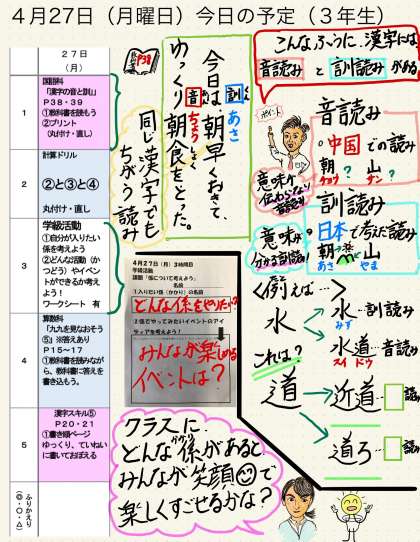 ４月27日（月曜日）今日の予定（３年生）
２７日
（月）
1
国語科
「漢字の音と訓」
Ｐ３８・３９
①教科書を読もう
②プリント
（丸付け・直し）
2
計算ドリル
②と③と④
丸付け・直し
3
学級活動
①自分が入りたい
係を考えよう
②どんな活動（か
つどう）やイベン
トができるか考え
よう！
ワークシート　有
4
算数科
「九九を見なおそう
⑤」※答えあり
Ｐ１５～１７
①教科書を読みなが
ら、教科書に答えを
書き込もう。
5
漢字スキル⑤
Ｐ２０・２１
①書き順ページ
ゆっくり、ていねい
に書いておぼえる
ふりかえり
（◎・○・△）
P38
今日は、朝早くおきて、
訓くん
あさ
ゆっくり朝食をとった。
音おん
ちょうしょく
同じ漢字でも
ちがう読み
こんなふうに、漢字には
音読み と 訓読み がある
ポイント
音読み
中国での読み
朝 山
チョウ？ サン？
意味が
伝わらない
音読み
訓読み
日本で考えた読み
朝 山
あさ やま
意味が
分かる訓読み
＜例えば…＞
水
水…訓読み
みず
水道…音読み
スイドウ
これは？
道
近道…読み
道ろ…読み
４月２７日（月）３時間目
学級活動
課題「係について考えよう」
名前
１入りたい係（かかり）の名前
どんな係をやりたい？
２係でやってみたいイベントのアイ
ディアを考えよう！
みんなが楽しめる
イベントは？
クラスに、
どんな係があると、
かかり
みんなが笑顔で
楽しくすごせるかな？